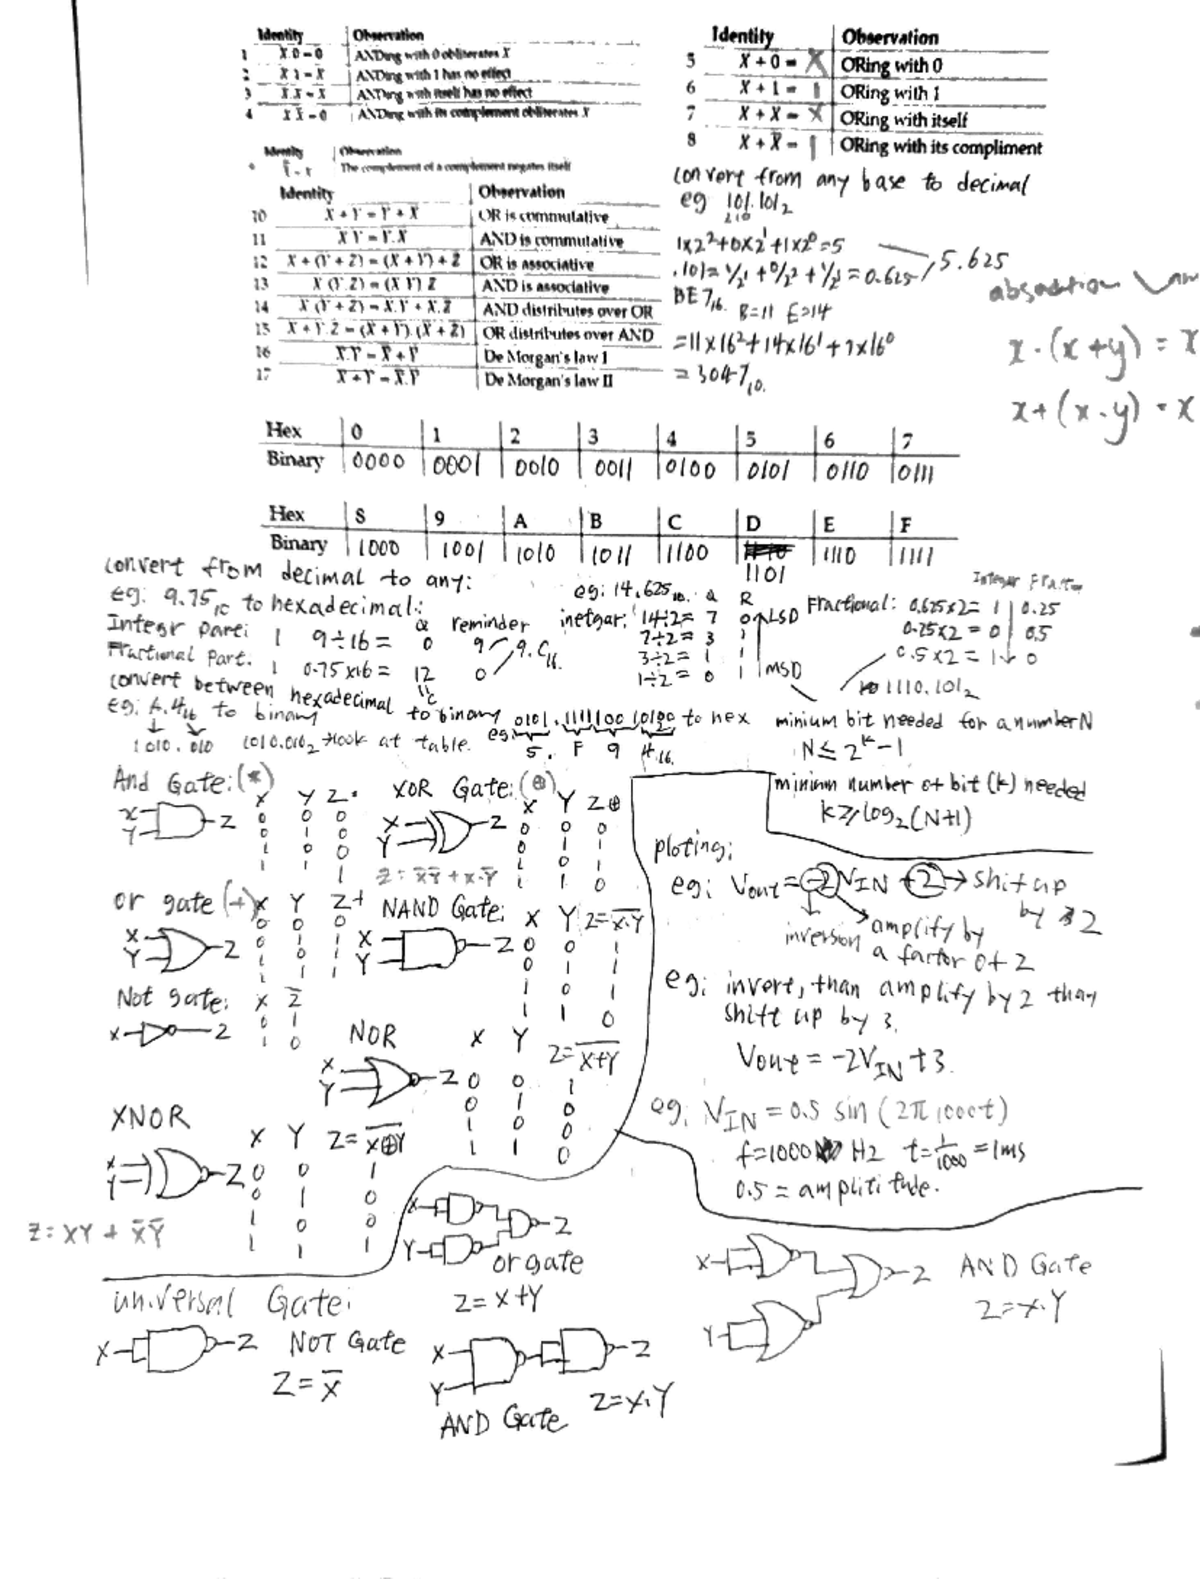 Identity Observation
1 X.0=0 ANDing with 0 obliterates X
2 X.1=X ANDing with 1 has no effect
3 X.X=X ANDing with itself has no effect
4 X.X̅=0 ANDing with its complement obliterates X
Identity Observation
5 X+0= X ORing with 0
6 X+1= 1 ORing with 1
7 X+X= X ORing with itself
8 X+X̅= 1 ORing with its compliment
Identity Observation
The complement of a complement negates itself
Identity Observation
10 X+Y=Y+X OR is commutative
11 X.Y=Y.X AND is commutative
12 X+(Y+Z)=(X+Y)+Z OR is associative
13 X.(Y.Z)=(X.Y).Z AND is associative
14 X.(Y+Z)=X.Y+X.Z AND distributes over OR
15 X+Y.Z=(X+Y).(X+Z) OR distributes over AND
16 X̅.̅Y̅=X̅+Y̅ De Morgan's law I
17 X̅+̅Y̅=X̅.Y̅ De Morgan's law II
convert from any base to decimal
eg 101.101₂
210
1x2²+0x2¹+1x2⁰=5
5.625
= 0.625
BE7₁₆. B=11 E=14
=11x16²+14x16¹+7x16⁰
=3047₁₀.
x·(x+y)=x
x+(x·y)=x
Hex 0 1 2 3 4 5 6 7
Binary 0000 0001 0010 0011 0100 0101 0110 0111
Hex 8 9 A B C D E F
Binary 1000 1001 1010 1011 1100 1101 1110 1111
convert from decimal to any:
eg: 9.75₁₀ to hexadecimal:
Q reminder
Integr Part: 1 9÷16= 0 9
9.C₁₆.
Fractional Part. 1 0.75x16= 12 0
C
eg: 14.625₁₀. Q R
inetgar: 14÷2= 7 0 LSD
7÷2= 3 1
3÷2= 1 1
1÷2= 0 1 MSD
Integer Fractio
Fractional: 0.625x2= 1 0.25
0.25x2= 0 0.5
0.5x2= 1 0
1110.101₂
convert between hexadecimal to binary
eg: A.4₁₆ to binary
1010.010 1010.010₂ look at table.
eg: 0101.111110010100 to hex
5. F 9 4₁₆.
minium bit needed for a number N
N≤2ᵏ-1
minium number of bit (k) needed
k≥log₂(N+1)
And Gate:(*)
X Y Z·
0 0 0
0 1 0
1 0 0
1 1 1
X
Y
Z
XOR Gate: (⊕)
X Y Z⊕
0 0 0
0 1 1
1 0 1
1 1 0
X
Y
Z
or gate (+)
X Y Z+
0 0 0
0 1 1
1 0 1
1 1 1
X
Y
Z
NAND Gate:
X Y Z=X̅.̅Y̅
0 0 1
0 1 1
1 0 1
1 1 0
X
Y
Z
Not gate:
X Z̅
0 1
1 0
X Z
NOR
X Y Z=X̅+̅Y̅
0 0 1
0 1 0
1 0 0
1 1 0
X
Y
Z
XNOR
X Y Z=X̅⊕̅Y̅
0 0 1
0 1 0
1 0 0
1 1 1
X
Y
Z
Z=XY+X̅Y̅
ploting:
eg: Vout=-2VIN+2 → shift up
by 2
inversion
amplify by
a factor of 2
eg: invert, than amplify by 2 than
shift up by 3.
Vout=-2VIN+3.
eg: VIN=0.5 sin(2π1000t)
f=1000 Hz t=1/1000=1ms
0.5= amplititude.
universal Gate:
X Z NOT Gate
Z=X̅
X
Y
Z
or gate
Z=X+Y
X
Y
Z
Z=X.Y
AND Gate
X
Y
Z
AND Gate
Z=X.Y